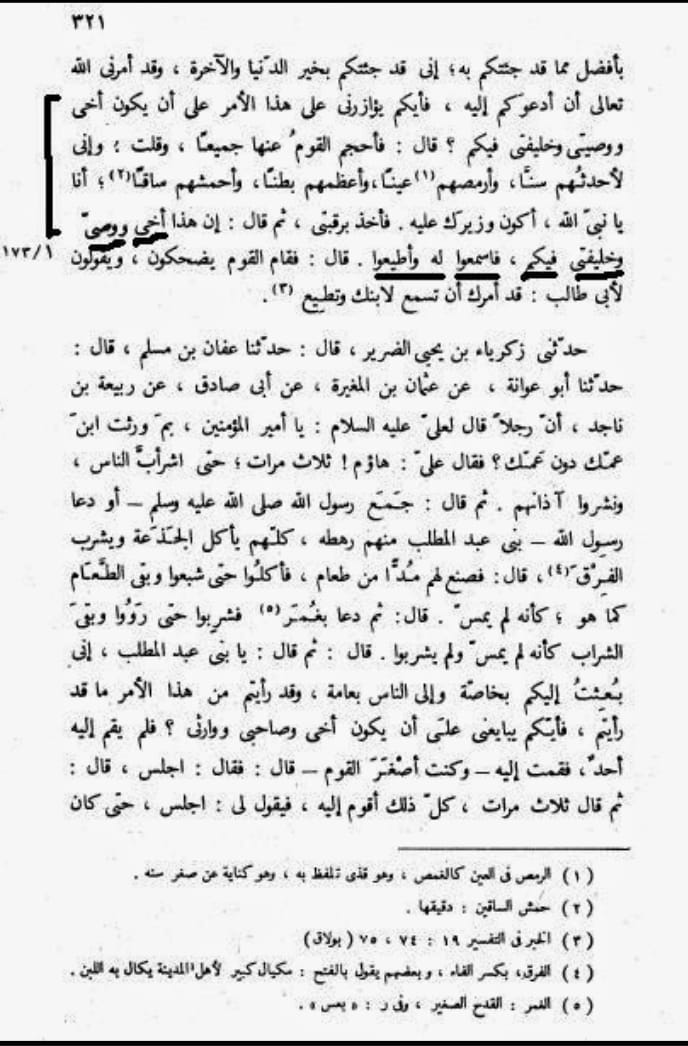 ٣٢١
بأفضل مما قد جئتكم به؛ إنى قد جئتكم بخير الدّنيا والآخرة ، وقد أمرنى الله
تعالى أن أدعوَكم إليه ، فأيكم يؤازرنى على هذا الأمر على أن يكون أخى
ووصيّى وخليفتى فيكم ؟ قال : فأحجم القومُ عنها جميعًا ، وقلت : وإنى
لأحدثُهم سنًّا، وأرمصهم (١) عينًا، وأعظمهم بطنًا، وأحمشهم ساقًا (٢)؛ أنا
يا نبىّ الله ، أكون وزيرك عليه . فأخذ برقبتى ، ثم قال : إن هذا أخى ووصىّ
وخليفتى فيكم ، فاسمعوا له وأطيعوا . قال : فقام القوم يضحكون ، ويقولون
١٧٣/١
لأبى طالب : قد أمرك أن تسمع لابنك وتطيع (٣) .
حدّثنى زكرياء بن يحيى الضرير ، قال : حدّثنا عفان بن مسلم ، قال :
حدّثنا أبو عوانة ، عن عثمان بن المغيرة ، عن أبى صادق ، عن ربيعة بن
ناجد ، أنّ رجلاً قال لعلىّ عليه السلام : يا أمير المؤمنين ، بمَ ورثت ابنَ
عمّك دون عَمّك؟ فقال علىّ : هاؤم ! ثلاث مرات ؛ حتى اشرأبَّ الناس ،
ونشروا آذانهم . ثم قال : جَمَع رسول الله صلى الله عليه وسلم – أو دعا
رسول الله – بنى عبد المطلب منهم رهطه ، كلّهم يأكل الجَذَعة ويشرب
الفِرْق (٤)، قال: فصنع لهم مُدًّا من طعام ، فأكلُوا حتى شبعوا وبقى الطَّعام
كما هو ؛ كأنه لم يمسّ . قال: ثم دعا بغُمَر (٥) فشربوا حتى رَوُوا وبقىَ
الشراب كأنه لم يمسّ ولم يشربوا . قال : ثم قال : يا بنى عبد المطلب ، إنى
بُعثتُ إليكم بخاصّة وإلى الناس بعامة ، وقد رأيتم من هذا الأمر ما قد
رأيتم ، فأيّكم يبايعنى علىَ أن يكون أخى وصاحبى ووارثى ؟ فلم يقم إليه
أحدٌ، فقمت إليه – وكنت أصْغَرَ القوم – قال : فقال : اجلس ، قال :
ثم قال ثلاث مرات ، كلّ ذلك أقوم إليه ، فيقول لى : اجلس ، حتى كان
(١) الرمص فى العين كالغمص ، وهو قذى تلفظ به ، وهو كناية عن صغر سنه .
(٢) حمش الساقين : دقيقها .
(٣) الخبر فى التفسير ١٩ : ٧٤ ، ٧٥ (بولاق)
(٤) الفرق، بكسر الفاء ، وبعضهم يقول بالفتح : مكيال كبير لأهل المدينة يكال به اللبن .
(٥) الغمر : القدح الصغير ، وفى ر : « بعس » .